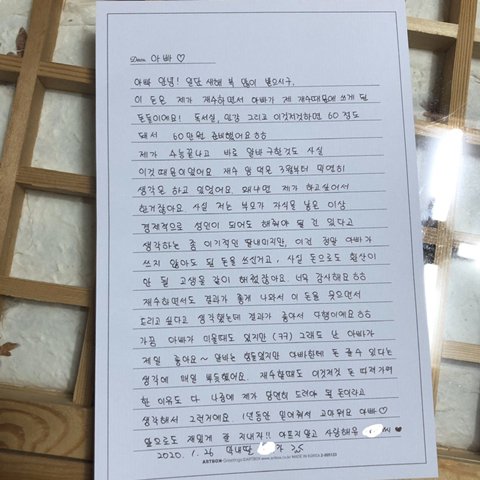 Dear. 아빠 ♡
아빠 안녕! 일단 새해 복 많이 받으시구,
이 돈은 제가 재수하면서 아빠가 제 재수때문에 쓰게 된
돈들이에요! 독서실, 인강 그리고 이것저것하면 60 정도
돼서 60만원 준비했어요ㅎㅎ
제가 수능끝나고 바로 알바 구한것도 사실
이것때문이었어요 재수 맘 먹은 3월부터 막연히
생각은 하고 있었어요. 왜냐면 제가 하고싶어서
한거잖아요. 사실 저는 부모가 자식을 낳은 이상
경제적으로 성인이 되어도 해줘야 될 건 있다고
생각하는 좀 이기적인 딸내미지만, 이건 정말 아빠가
쓰지 않아도 될 돈을 쓰신거고, 사실 돈으로도 환산이
안 될 고생을 같이 해줬잖아요. 너무 감사해요ㅎㅎ
재수하면서도 결과가 좋게 나와서 이 돈을 웃으면서
드리고싶다고 생각했는데 결과가 좋아서 다행이에요ㅎㅎ
가끔 아빠가 미울때도 있지만 (ㅋㅋ) 그래도 난 아빠가
제일 좋아요~ 알바는 힘들었지만 아빠한테 돈 줄수 있다는
생각에 매일 뿌듯했어요. 재수할때도 이것저것 돈 따져가며
한 이유도 다 나중에 제가 당연히 드려야 될 돈이라고
생각해서 그런거에요. 1년동안 믿어줘서 고마워요 아빠♡
앞으로도 재밌게 잘 지내자!! 아프지말고 사랑해유 씨♥
2020. 1. 26 막내딸 가
ARTBOX Greetings ©ARTBOX www.artbox.co.kr MADE IN KOREA